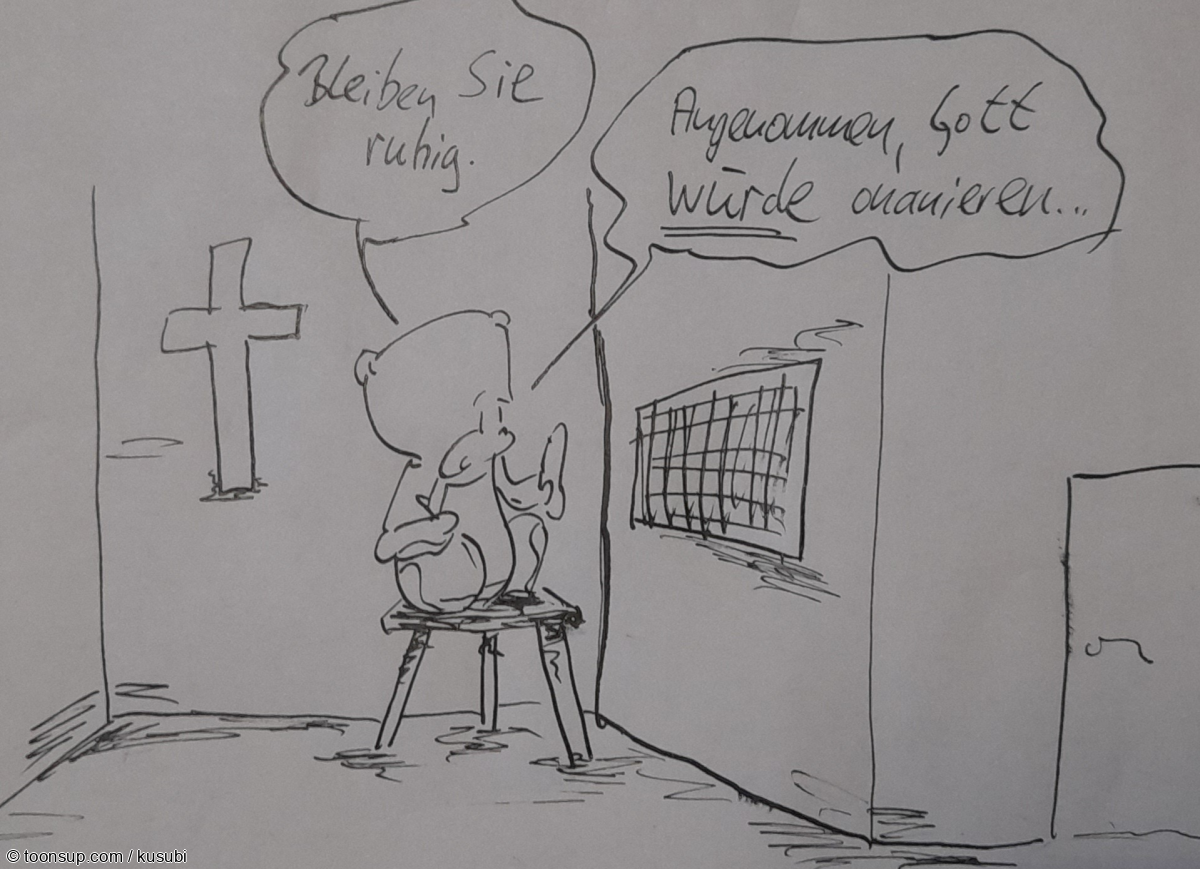 Bleiben Sie
ruhig.
Angenommen, Gott
würde onanieren...
© toonsup.com / kusubi